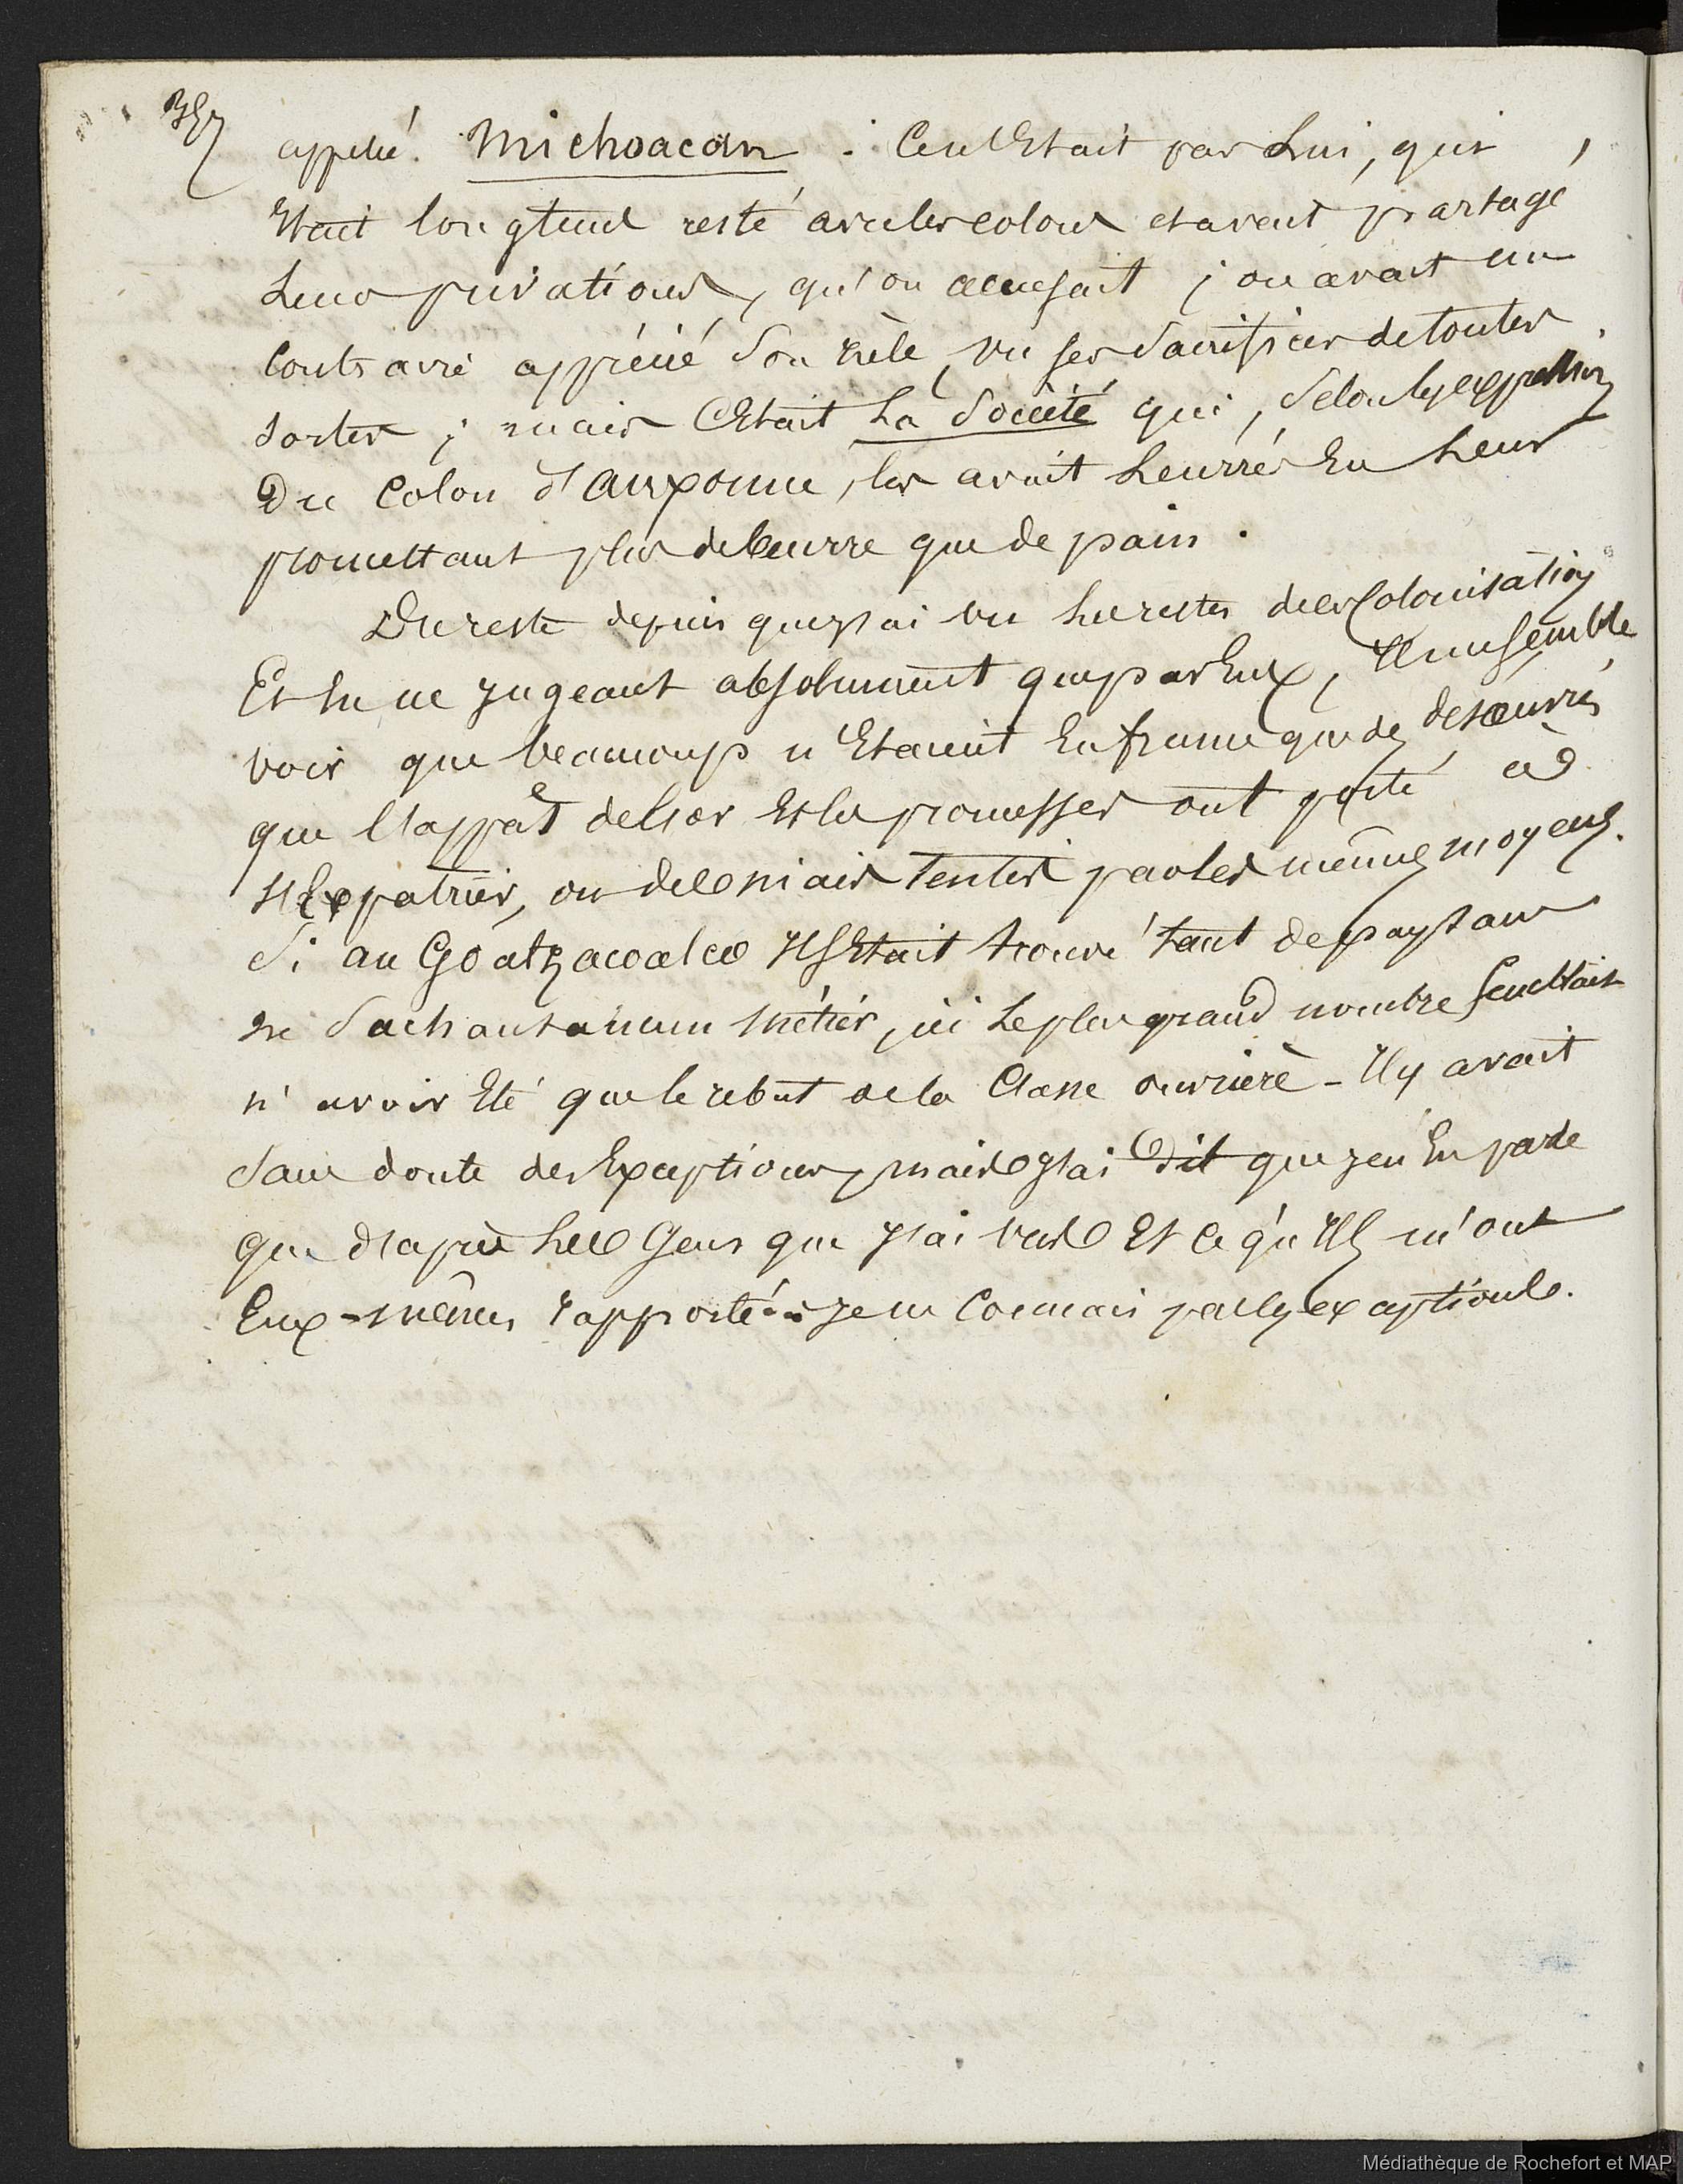 appelé. Michoacan : Ce n'Etait pas Lui, qui
Etait longtems resté avec les colons et avait partagé
Leurs privations, qu'on accusait ; on avait au
Contraire apprécié son zèle, vu ses sacrifices de toutes
sortes ; mais C'Etait La Société qui, selon les expressions
Du Colon d'Auxonne, les avait Leurrés En Leur
promettant plus de beurre que de pain.
Du reste depuis que j'ai vu Les restes des Colonisations
Et En ne jugeant absolument que par Eux, Il me semble
voir que beaucoup n'Etaient En france que des désoeuvrés
que l'appât de l'or Et les promesses ont porté à
s'Expatrier, ou des niais tentés par les mêmes moyens.
Si au Goatzacoalco Il s'Etait trouvé tant de paysans
ne sachant aucun métier, ici Le plus grand nombre semblait
n'avoir Eté que le rebut de la Classe ouvrière - Il y avait
sans doute des Exceptions, mais j'ai dit que je n'En parle
que d'après Les Gens que j'ai vus Et ce qu'Ils m'ont
Eux-mêmes rapporté : je ne Connais pas les exceptions.
Médiathèque de Rochefort et MAP